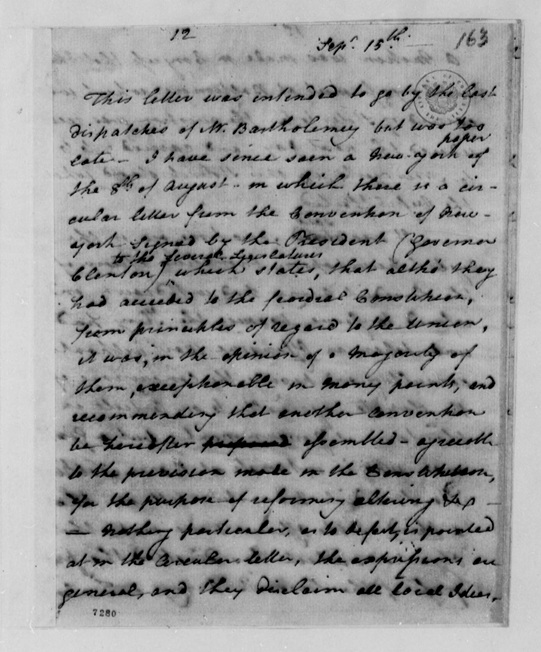 12
Sepr. 15th.
163
This letter was intended to go by the last
dispatches of Mr. Bartholemey but was too
late - I have since seen a New-york paper of
the 8th of August - in which there is a cir-
cular letter from the Convention of New-
york signed by the President (Governor
Clinton) to the several Legislatures which states, that altho' they
had acceded to the foederal Constitution,
from principles of regard to the Union,
it was, in the opinion of a Majority of
them, exceptionable in many points, and
recommending that another Convention
be hereafter proposed assembled - agreeable
to the provision made in the Constitution,
for the purpose of reforming altering &c. -
- Nothing particular, as to defects, is pointed
at in the Circular letter, the expressions are
general, and they disclaim all local Ideas.
7280